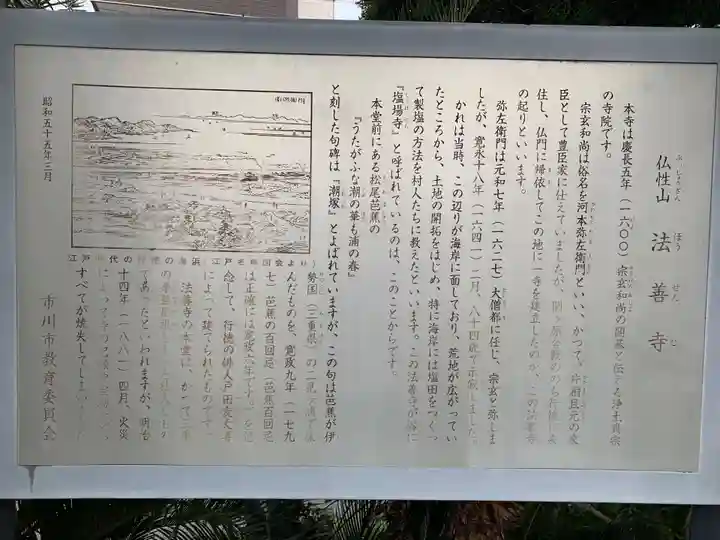 仏性山 法善寺
ぶっしょうざん ほうぜんじ
本寺は慶長五年（一六〇〇）宗玄和尚の開基と伝える浄土真宗
の寺院です。
宗玄和尚は俗名を河本弥左衛門といい、かつて、片桐且元の家
臣として豊臣家に仕えていましたが、関ヶ原合戦ののち行徳に
住し、仏門に帰依してこの地に一寺を建立したのが、この法善寺
の起りといいます。
弥左衛門は元和七年（一六二七）大僧都に任じ、宗玄と号しま
したが、寛永十八年（一六四一）二月、八十四歳で示寂しました。
かれは当時、この辺りが海岸に面しており、荒地が広がってい
たところから、土地の開拓をはじめ、特に海岸には塩田をつくっ
て製塩の方法を村人たちに教えたといいます。この法善寺が俗に
『塩場寺』と呼ばれているのは、このことからです。
本堂前にある松尾芭蕉の
『うたがふな潮の華も浦の春』
と刻した句碑は『潮塚』とよばれていますが、この句は芭蕉が伊
勢国（三重県）の二見ヶ浦で
んだものを、寛政九年（一七九
七）芭蕉の百回忌（芭蕉百回忌
は正確には寛政五年です。）を記
念して、行徳の俳人戸田麦丈
によって建てられたものです。
法善寺の本堂は、かつて
であったといわれますが、明治
十四年（一八八一）四月、火災
によって
すべてが焼失してしまいました
江戸時代の行徳の海浜（江戸名所図会より）
昭和五十五年三月
市川市教育委員会